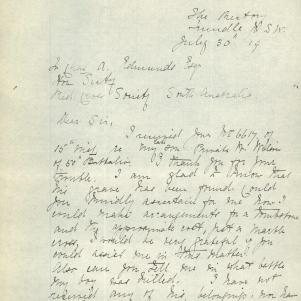 The Rectory
Trundle N.S.W.
July 30th 19
To Chas. A. Edmunds Esq
Hon Secty
Red Cross Society South Australia
Dear Sir,
I received your No 6617 of
15th inst re my late son Private W.
of 50th Battalion & I thank you for your
trouble. I am glad to know that
his grave has been found could
you kindly ascertain for me how I
could make arrangements for a tombstone
and the approximate cost, not a marble
cross, I would be very grateful if you
could assist me in this matter?
Also can you tell me in what battle
my boy was killed. I have not
received any of his belongings nor has